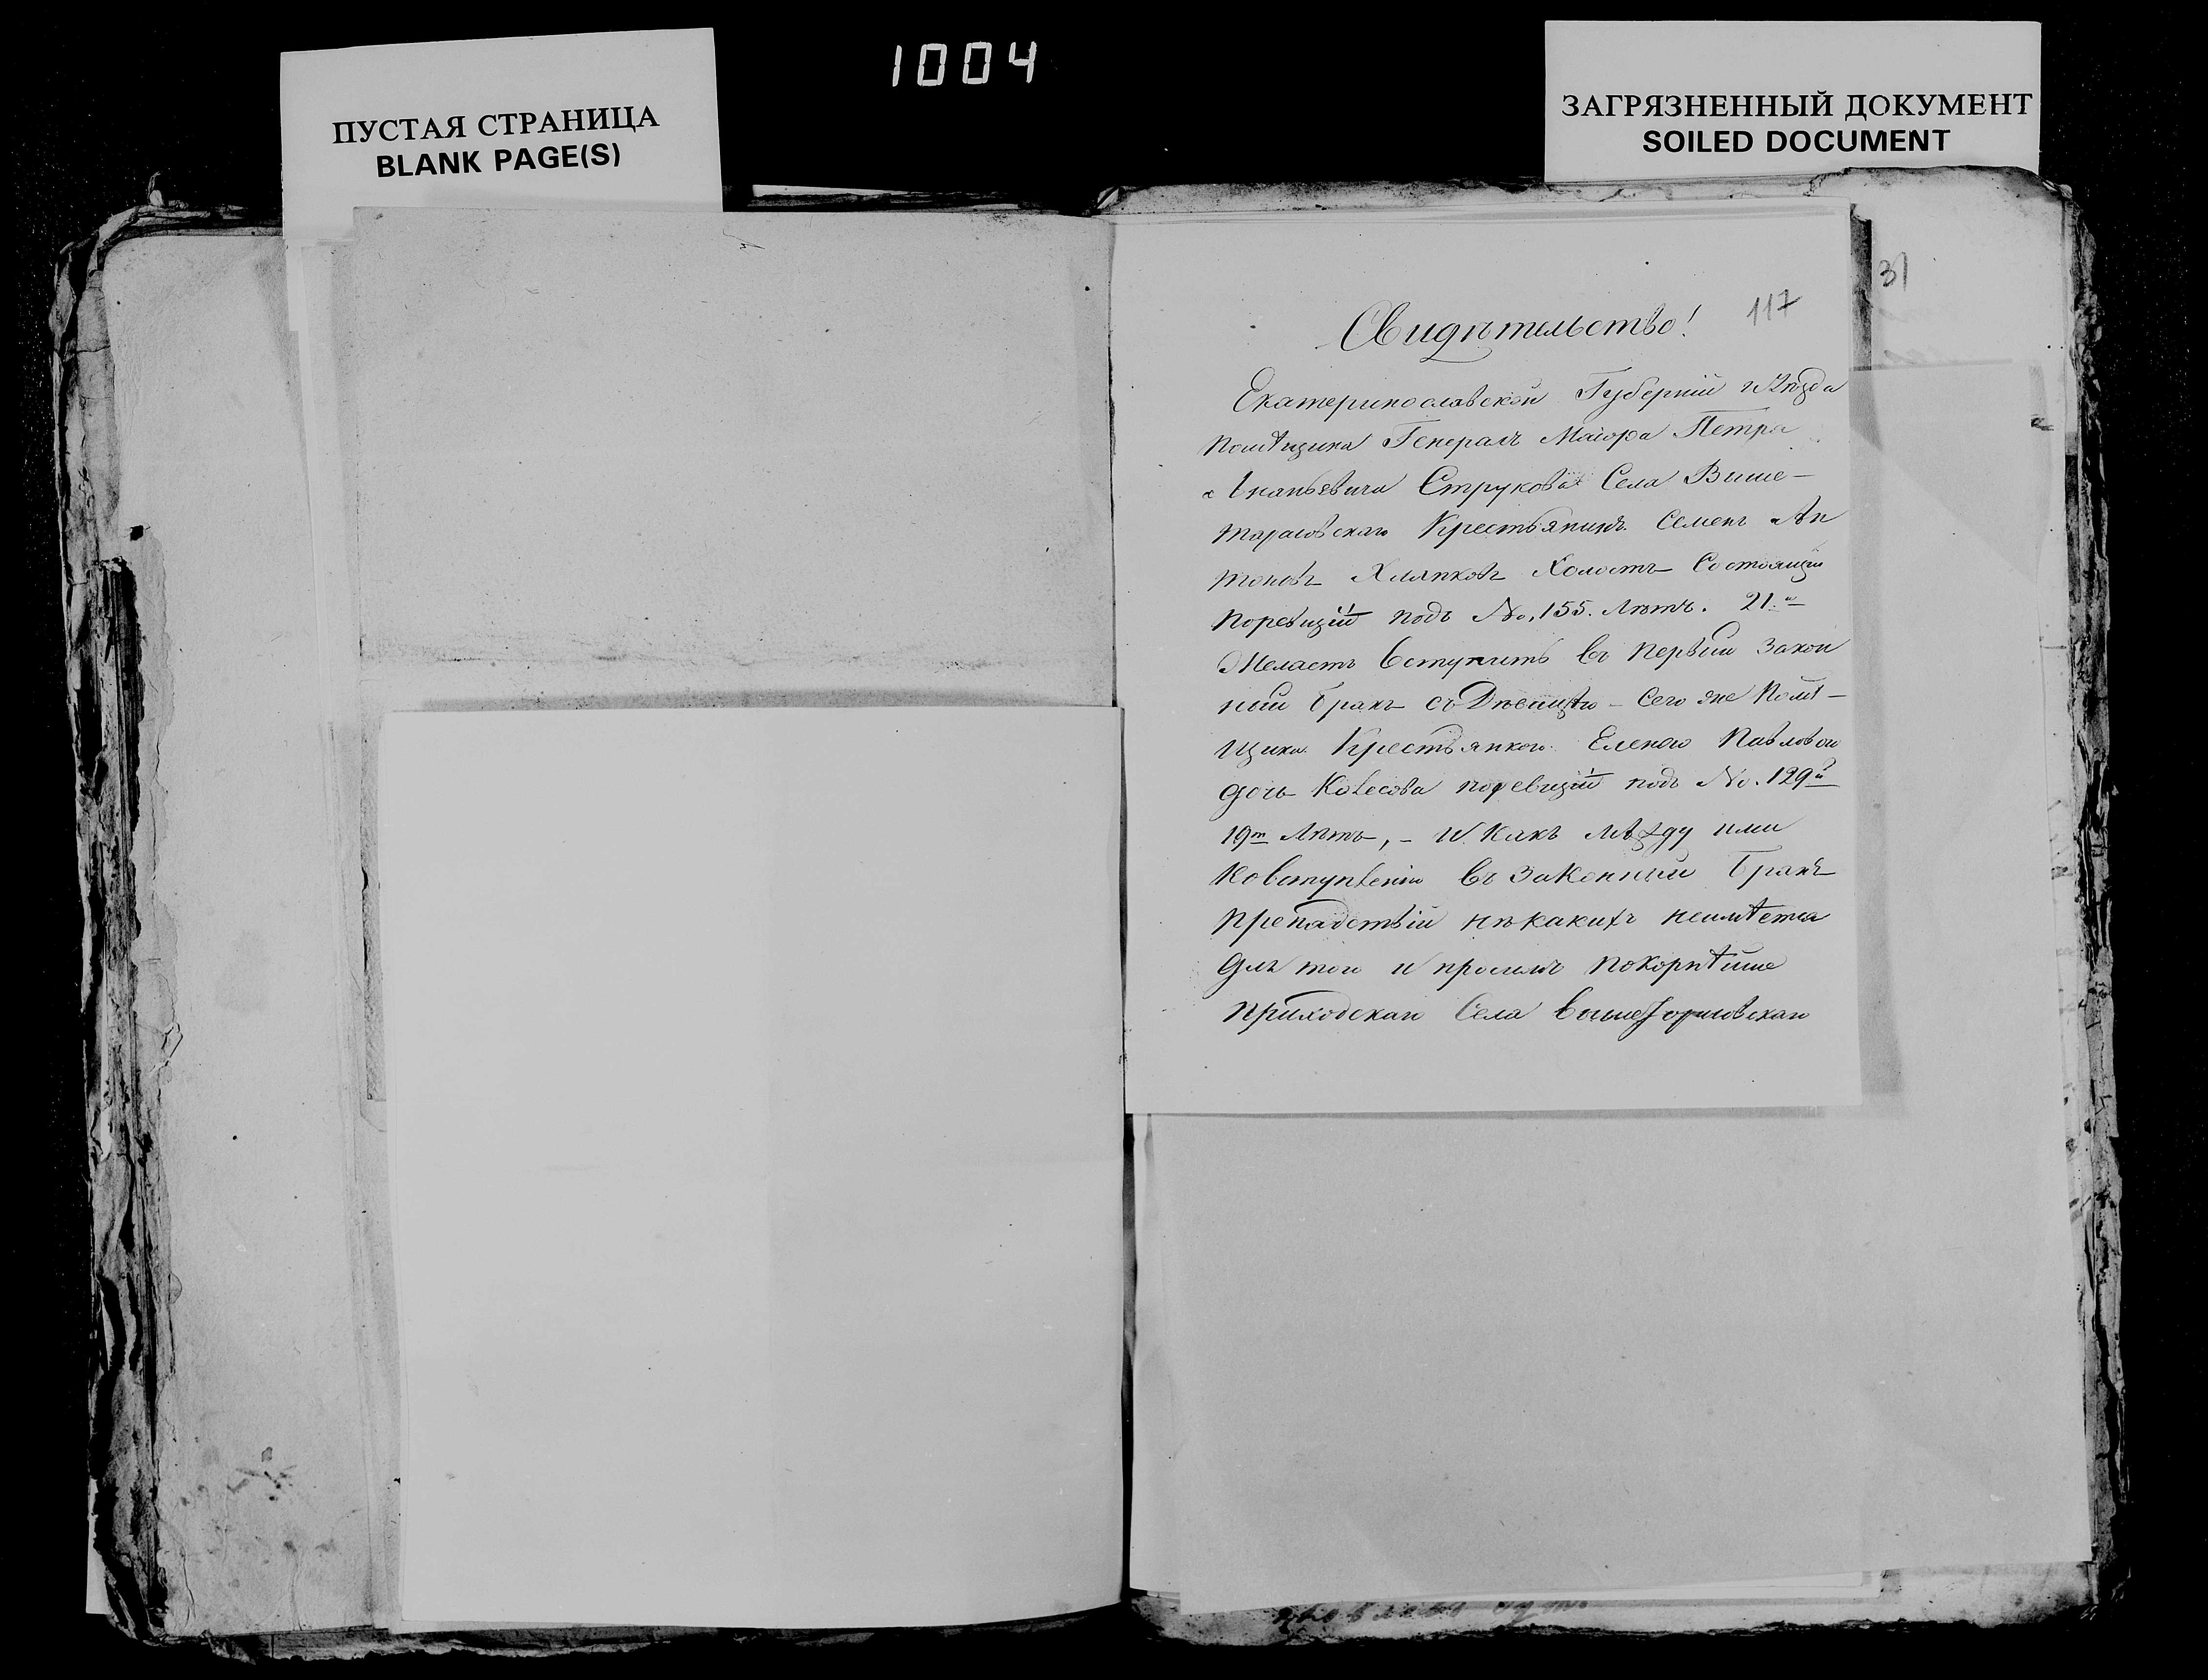 1004
ПУСТАЯ СТРАНИЦА
BLANK PAGE(S)
ЗАГРЯЗНЕННЫЙ ДОКУМЕНТ
SOILED DOCUMENT
31
117
Свидѣтельство!
Екатеринославской Губерніи и Уѣзда
помѣщика Генералъ Маіора Петра
Ананьевича Струкова Села Выше-
тарасовскаго Крестьянинъ Семенъ Ан
тоновъ Хляпковъ Холостъ Состоящій
поревизіи подъ No. 155. Лѣтъ. 21.
Желаетъ вступить въ первый закон
ный бракъ съ Дѣвицѣю - Сего же Помѣ-
щика Крестьянкою Еленою Павловою
дочь Колесова поревизіи подъ No. 129
19 Лѣтъ, - и какъ мѣжду ими
Ковступленію въ Законный Бракъ
препядствій нѣкакихъ неимѣется
Для того и просимъ покорнѣйше
приходскаго Села